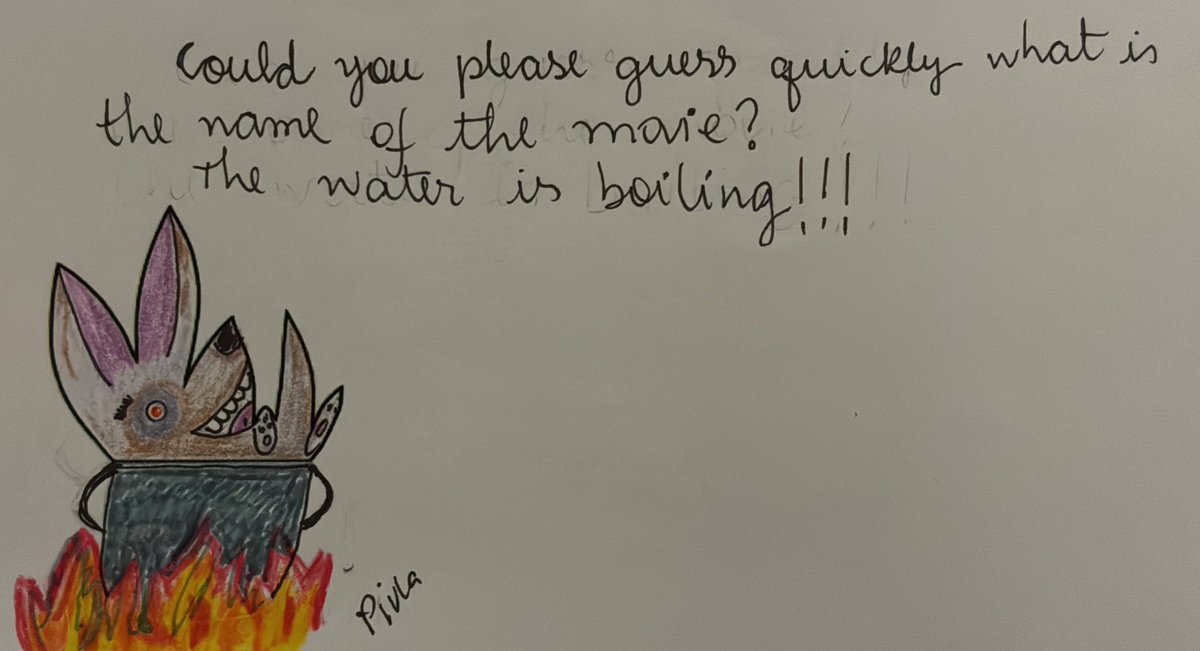 Could you please guess quickly what is
the name of the movie?
The water is boiling!!!
Pivla